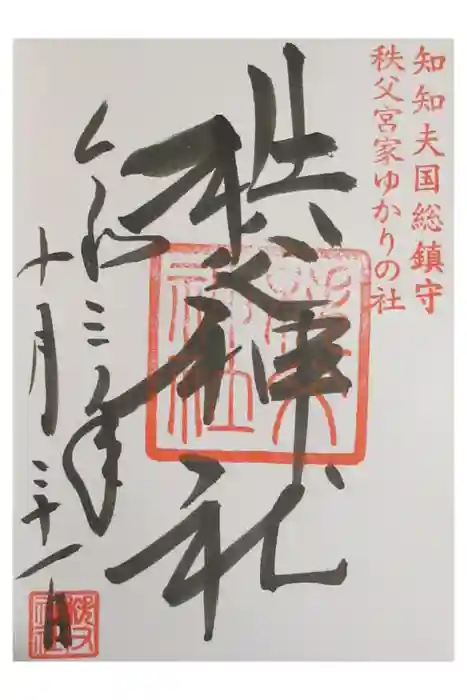 知知夫国総鎮守
秩父宮家ゆかりの社
秩父神社
令和三年
十月三十一日
秩父神社
秩父神社